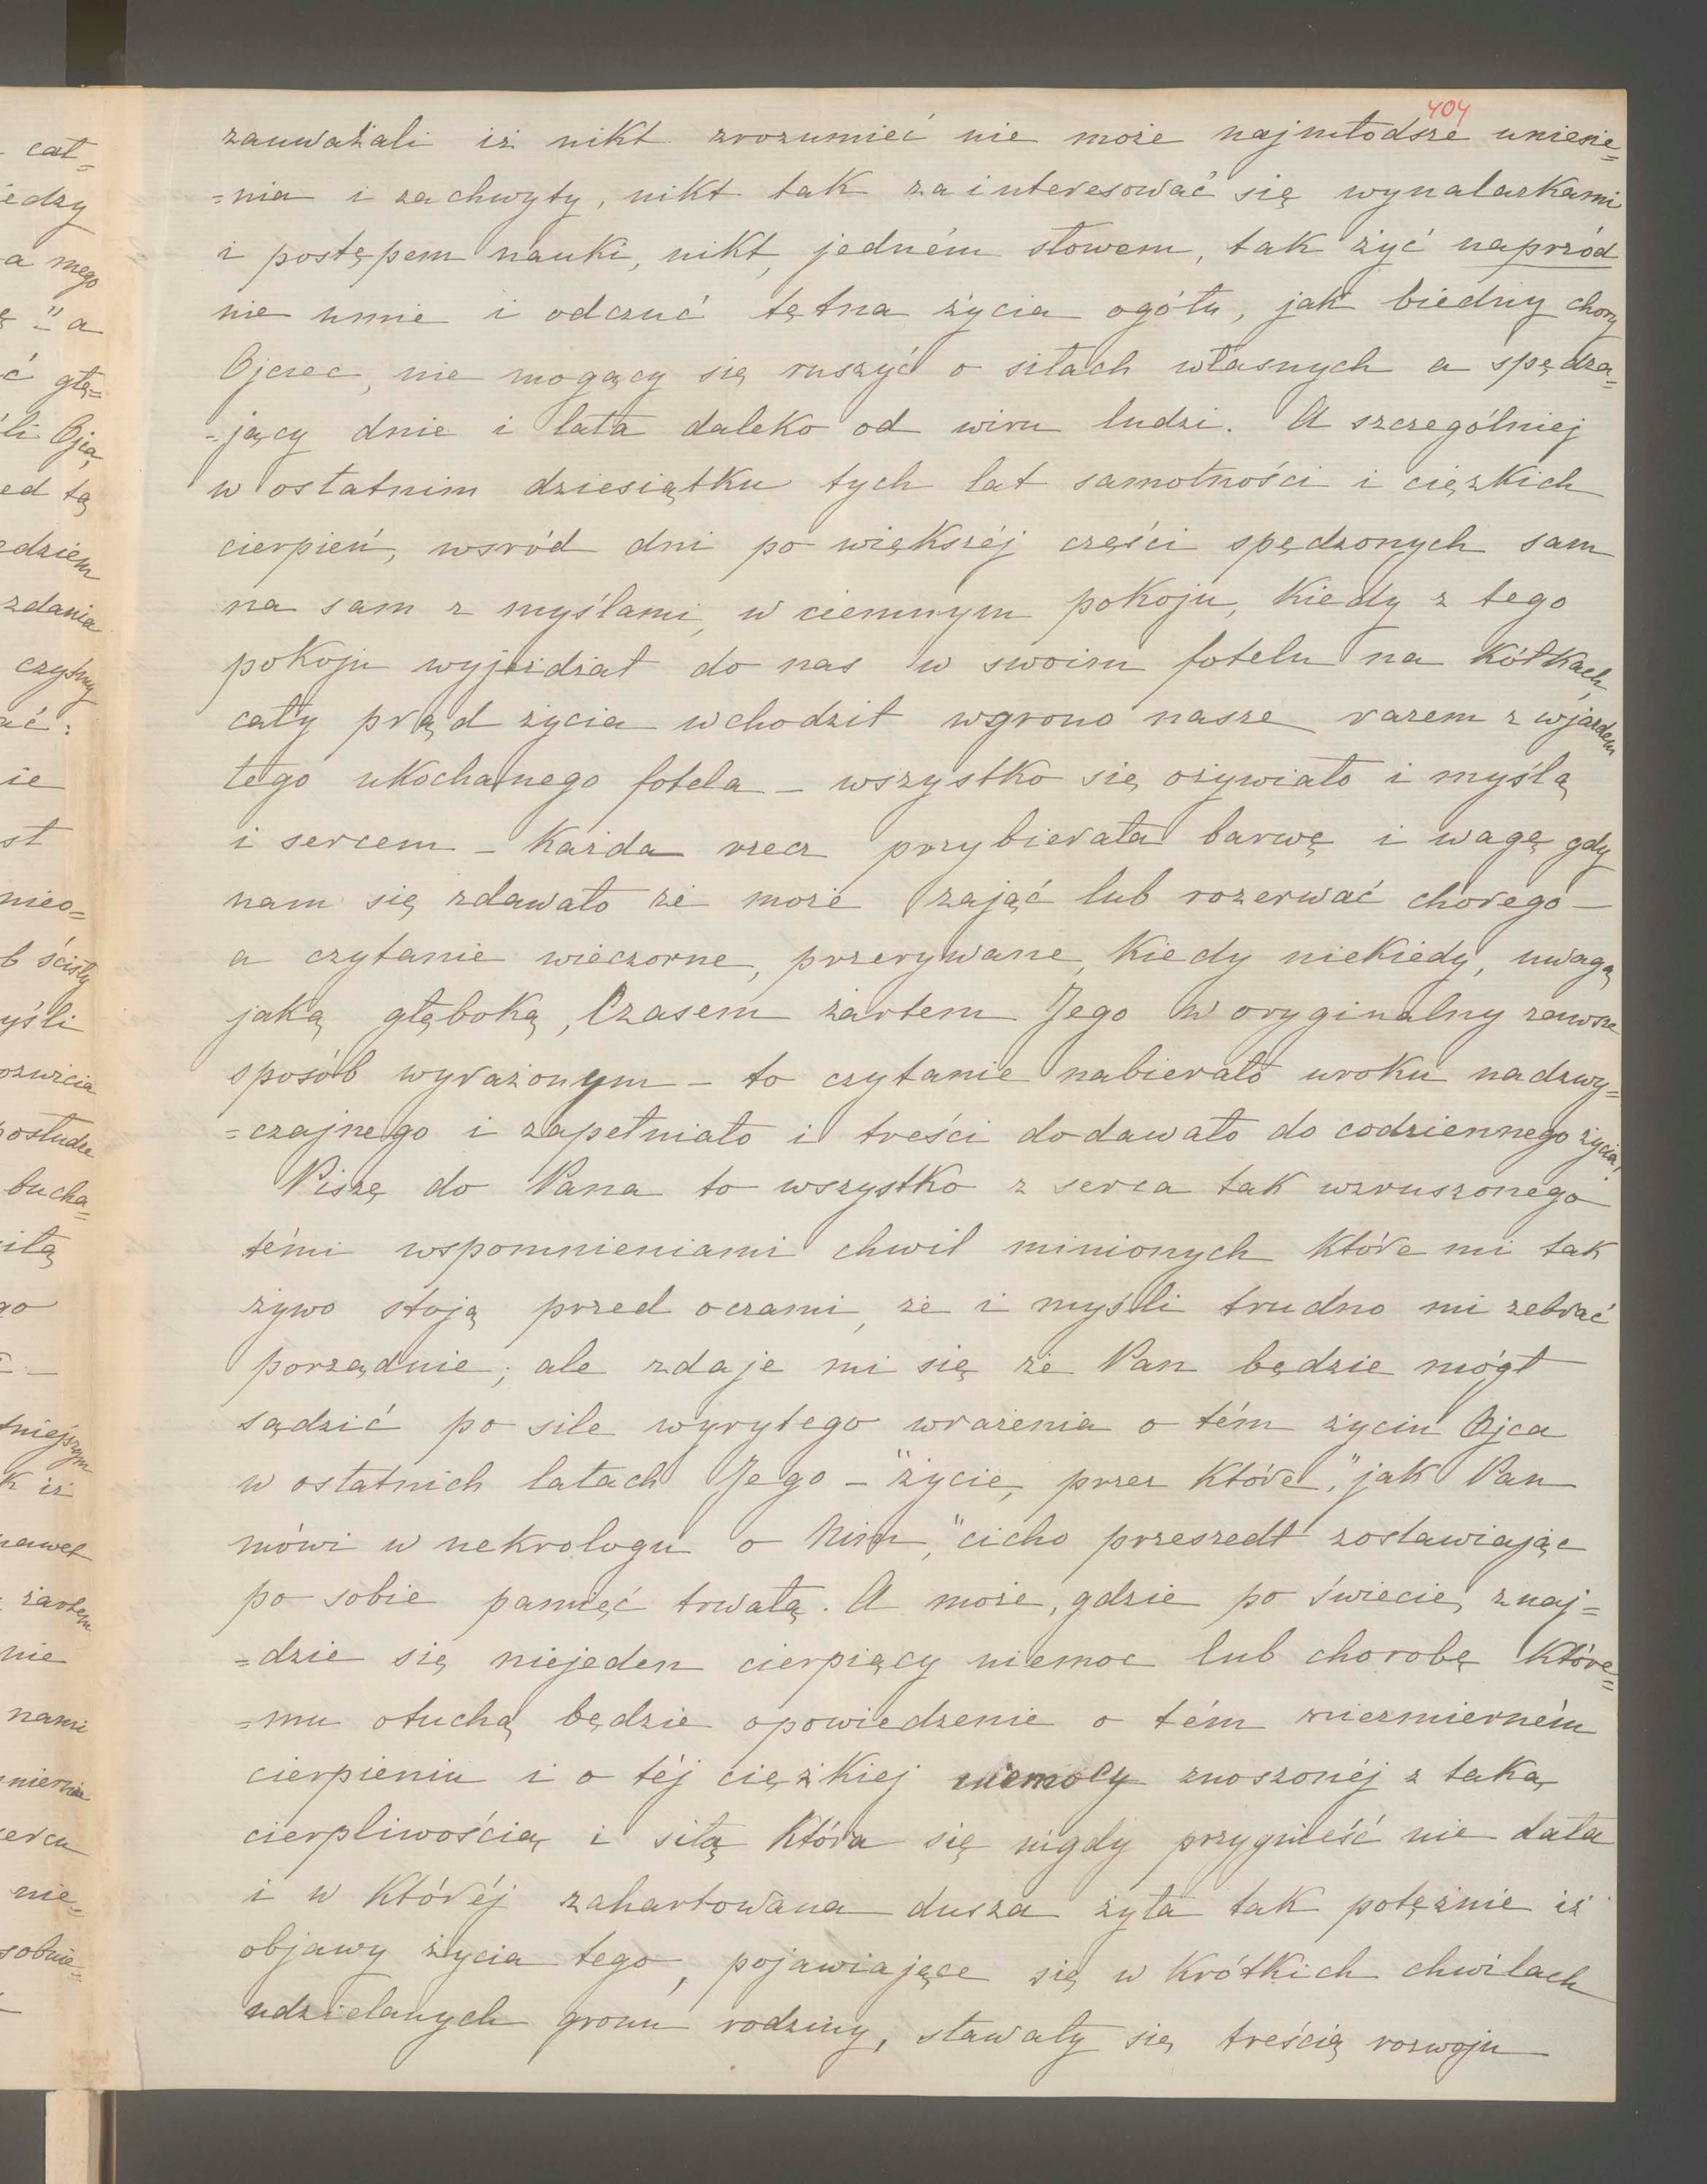 404
zauważali iż nikt zrozumieć nie może najmłodsze uniesie=
=nia i zachwyty, nikt tak zainteresować się wynalazkami
i postępem nauki, nikt, jedném słowem, tak żyć naprzód
nie umie i odczuć tętna życia ogółu, jak biédny chory
Ojciec, nie mogący się ruszyć o siłach własnych a spędza=
=jący dnie i lata daleko od wiru ludzi. A szczególniej
w ostatnim dziesiątku tych lat samotności i ciężkich
cierpień, wsród dni po większéj części spędzonych sam
na sam z myślami, w ciemnym pokoju, kiedy z tego
pokoju wyjeżdżał do nas w swoim fotelu na kółkach,
cały prąd życia wchodził w grono nasze razem z wjazdem
tego ukochanego fotela – wszystko się ożywiało i myślą
i sercem – każda rzecz przybierała barwę i wagę gdy
nam się zdawało że może zająć lub rozerwać chorego –
a czytanie wieczorne, przerywane, kiedy niekiedy, uwagą
jaką głęboką, czasem żartem Jego w oryginalny zawsze
sposób wyrażonym – to czytanie nabierało uroku nadzwy=
=czajnego i zapełniało i treści dodawało do codziennego życia,
Piszę do Pana to wszystko z serca tak wzruszonego
témi wspomnieniami chwil minionych które mi tak
żywo stoją przed oczami, że i myśli trudno mi zebrać
porządnie; ale zdaje mi się że Pan będzie mógł
sądzić po sile wyrytego wrażenia o tém życiu Ojca
w ostatnich latach Jego – "życie, przez które," jak Pan
mówi w nekrologu o Nim, "cicho przeszedł zostawiając
po sobie pamięć trwałą. A może, gdzie po świecie, znaj=
=dzie się niejeden cierpiący niemoc lub chorobę któré=
=mu otuchą będzie opowiedzenie o tém niezmierném
cierpieniu i o téj ciężkiej niemocy znoszonéj z taką
cierpliwością i siłą która się nigdy przygnieść nie dała
i w któréj zahartowana dusza żyła tak potężnie iż
objawy życia tego, pojawiające się w krótkich chwilach
udzielanych gronu rodziny, stawały się treścią rozwoju